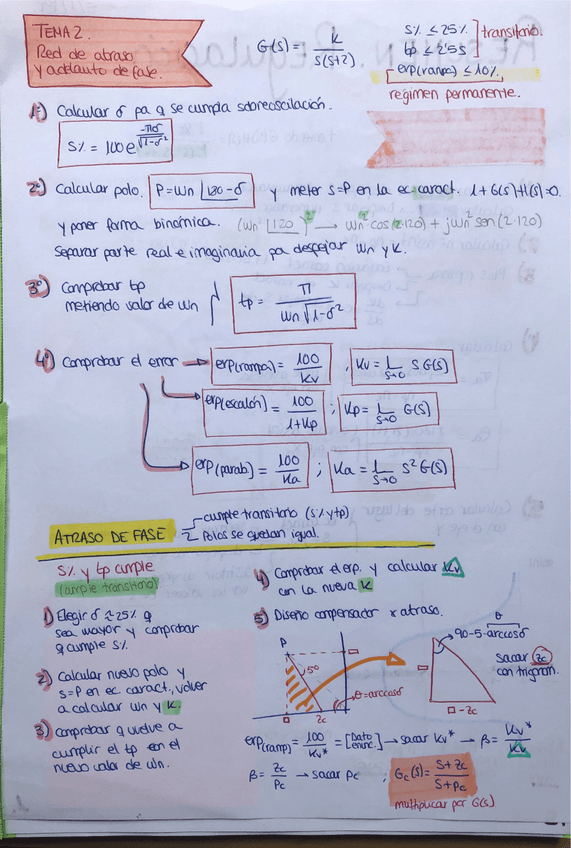 TEMA 2.
Red de atraso
y adelanto de fase.
G(s) = K / s(s+2)
S% ≤ 25%
tp ≤ 2'5s
} transitorio.
erp(rampa) ≤ 10%.
regimen permanente.
1º) Calcular σ pa q se cumpla sobreoscilación.
S% = 100 e^(-πσ/√1-σ²)
2º) Calcular polo. P = Wn ∠180-σ y meter s=P en la ec. caract. 1+G(s)+H(s)=0.
y poner forma binómica. (Wn ∠120)² → Wn² cos(2·120) + jWn² sen(2·120)
Separar parte real e imaginaria pa despejar Wn y K.
3º) Comprobar tp
metiendo valor de Wn
tp = π / Wn√1-σ²
4º) Comprobar el error → erp(rampa) = 100/Kv ; Kv = L s→0 s G(s)
erp(escalón) = 100/1+Kp ; Kp = L s→0 G(s)
erp(parab) = 100/Ka ; Ka = L s→0 s² G(s)
ATRASO DE FASE
cumple transitorio (s% y tp)
Polos se quedan igual.
S% y tp cumple
(cumple transitorio)
1) Elegir σ ≈ 25% q
sea mayor y comprobar
q cumple s%.
2) Calcular nuevo polo y
s=P en ec. caract, volver
a calcular Wn y K.
3) Comprobar q vuelve a
cumplir el tp con el
nuevo valor de Wn.
4) Comprobar el erp. y calcular Kv
con la nueva K
5) Diseño compensador x atraso.
P
5º
zc
θ = arccosσ
θ
90-5-arccosσ
sacar zc
con trigonom.
□ - zc
erp(ramp) = 100/Kv* = [Dato enunc.] → sacar Kv* → β = Kv*/Kv
β = zc/pc → sacar pc ; Gc(s) = s+zc / s+pc
multiplicar por G(s)